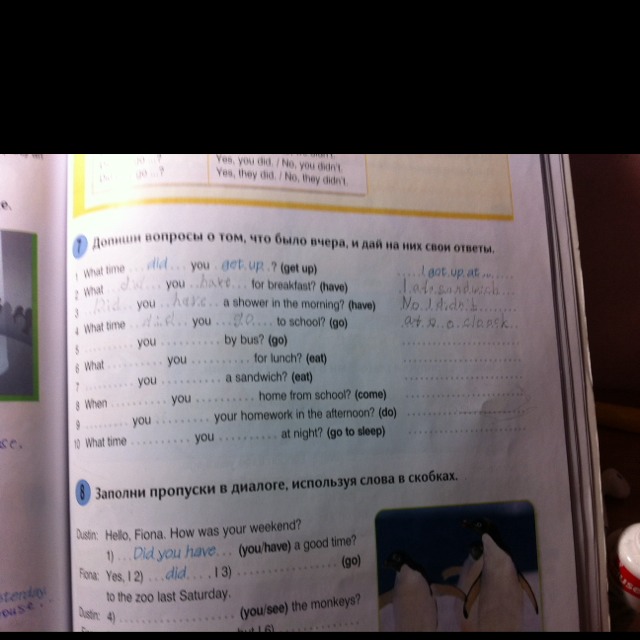 Yes, you did. / No, you didn't.
go ...? Yes, they did. / No, they didn't.
e.
7 Допиши вопросы о том, что было вчера, и дай на них свои ответы.
1 What time ... did ... you ... get up ..? (get up) .... I got up at ...
2 What ... did ... you ... have ... for breakfast? (have) I ate sandwich
3 Did ... you ... have ... a shower in the morning? (have) No, I didn't
4 What time ... did ... you ... go ... to school? (go) at
5 .......... you .......... by bus? (go) ..........
6 What .......... you .......... for lunch? (eat) ..........
7 .......... you .......... a sandwich? (eat) ..........
8 When .......... you .......... home from school? (come) ..........
9 .......... you .......... your homework in the afternoon? (do) ..........
10 What time .......... you .......... at night? (go to sleep) ..........
8 Заполни пропуски в диалоге, используя слова в скобках.
Dustin: Hello, Fiona. How was your weekend?
1) ... Did you have ... (you/have) a good time?
Fiona: Yes, I 2) ... did .... I 3) .......... (go)
to the zoo last Saturday.
Dustin: 4) .......... (you/see) the monkeys?
but I 6)